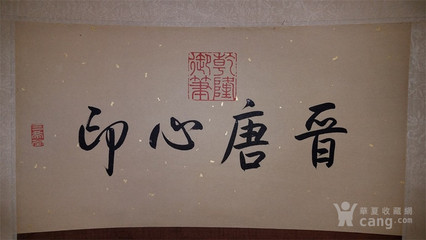 晋唐心印
乾隆御筆
華夏收藏網
cang.com